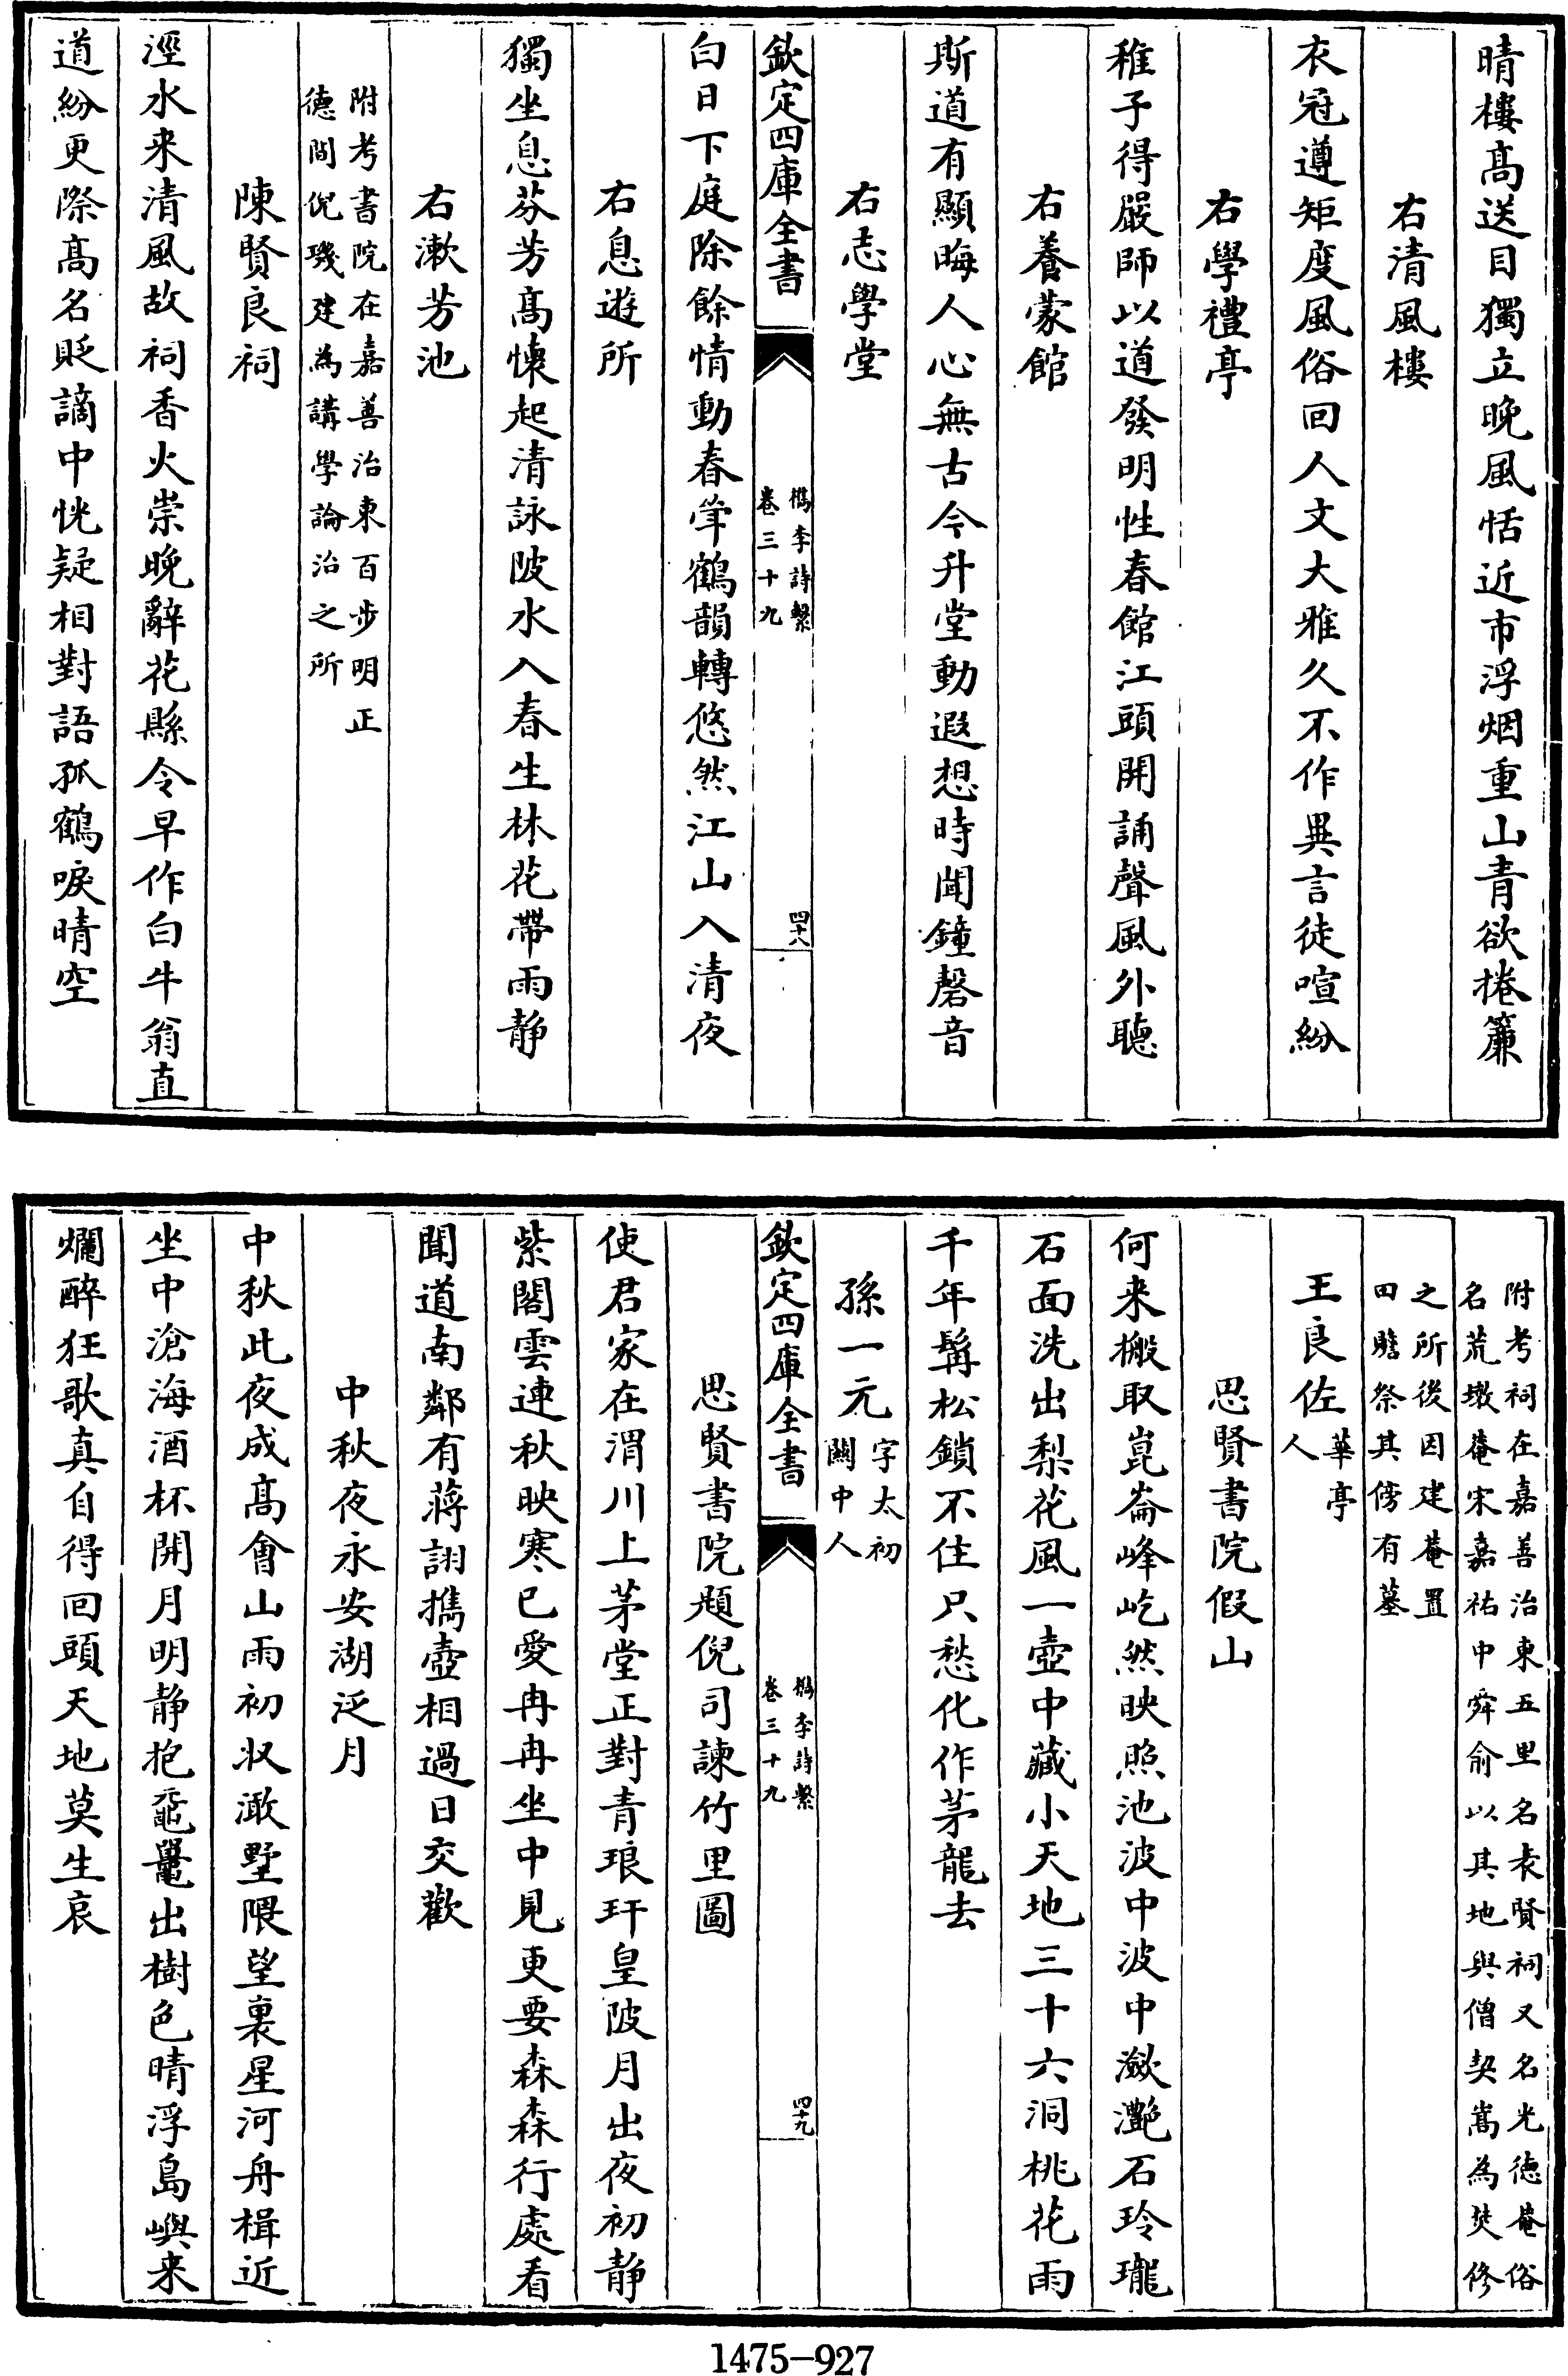 晴樓髙送目獨立晚風恬近市浮烟重山青欲捲簾
右清風樓
衣冠遵矩度風俗回人文大雅久不作異言徒喧紛
右學禮亭
稚子得嚴師以道發明性春館江頭開誦聲風外聽
右養蒙館
斯道有顯晦人心無古今升堂動遐想時聞鐘磬音
右志學堂
欽定四庫全書
檇李詩繫
卷三十九
四十八
白日下庭除餘情動春穽鶴韻轉悠然江山入清夜
右息遊所
獨坐息芬芳髙懐起清詠陂水入春生林花帶雨静
右漱芳池
附考書院在嘉善治東百步明正
徳間倪璣建為講學論治之所
陳賢良祠
溼水来清風故祠香火崇晚辭花縣令早作白牛翁直
道紛更際髙名貶謫中恍疑相對語孤鶴唳晴空
附考祠在嘉善治東五里名表賢祠又名光徳菴俗
名荒墩菴宋嘉祐中舜俞以其地與僧契嵩為焚修
之所後因建菴置
田贍祭其傍有墓
王良佐
華亭
人
思賢書院假山
何来搬取崑崙峰屹然映照池波中波中瀲灔石玲瓏
石面洗出梨花風一壺中藏小天地三十六洞桃花雨
千年髯松鎖不住只愁化作茅龍去
孫一元
字太初
關中人
欽定四庫全書
檇李詩繫
卷三十九
四十九
思賢書院題倪司諫竹里圖
使君家在渭川上茅堂正對青琅玕皇陂月出夜初静
紫閣雲連秋映寒已愛冉冉坐中見更要森森行處看
聞道南鄰有蔣詡攜壺相過日交歡
中秋夜永安湖泛月
中秋此夜成髙會山雨初収澉墅隈望裏星河舟楫近
坐中滄海酒杯開月明静抱黿鼉出樹色晴浮島嶼来
爛醉狂歌真自得回頭天地莫生哀
1475-927